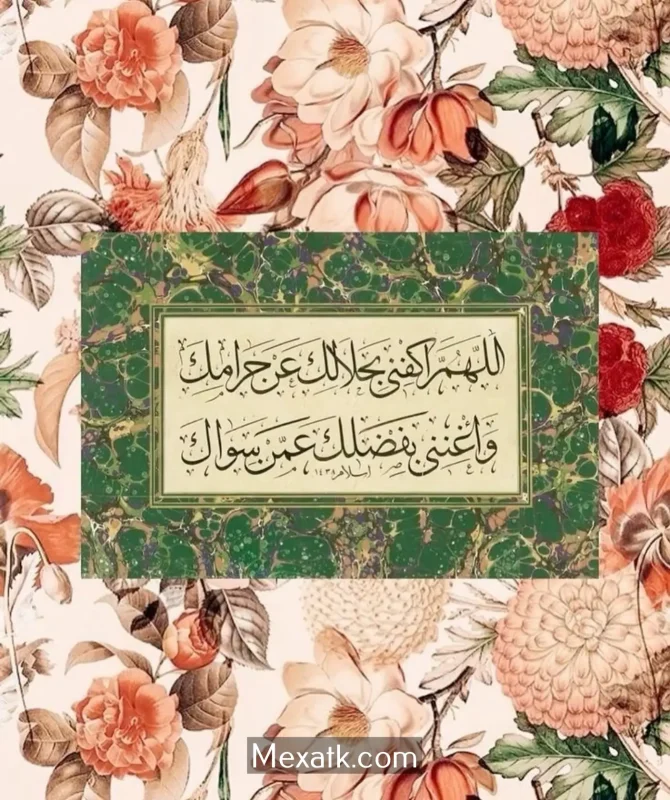 اللَّهُمَّ اكْفِنِي بِحَلَالِكَ عَنْ حَرَامِكَ
وَأَغْنِنِي بِفَضْلِكَ عَمَّنْ سِوَاكَ
Mexatk.com